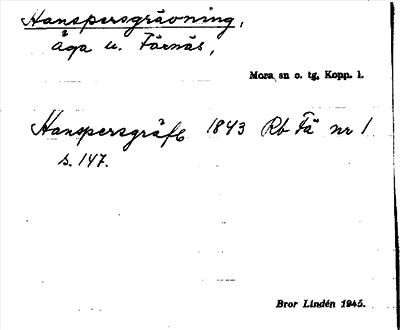 Hanspersgrävning,
åga u. Färnäs,
Mora sn o. tg, Kopp. l.
Hanspersgräfv 1843 Rb Fä nr 1
s. 147.
Bror Lindén 1945.